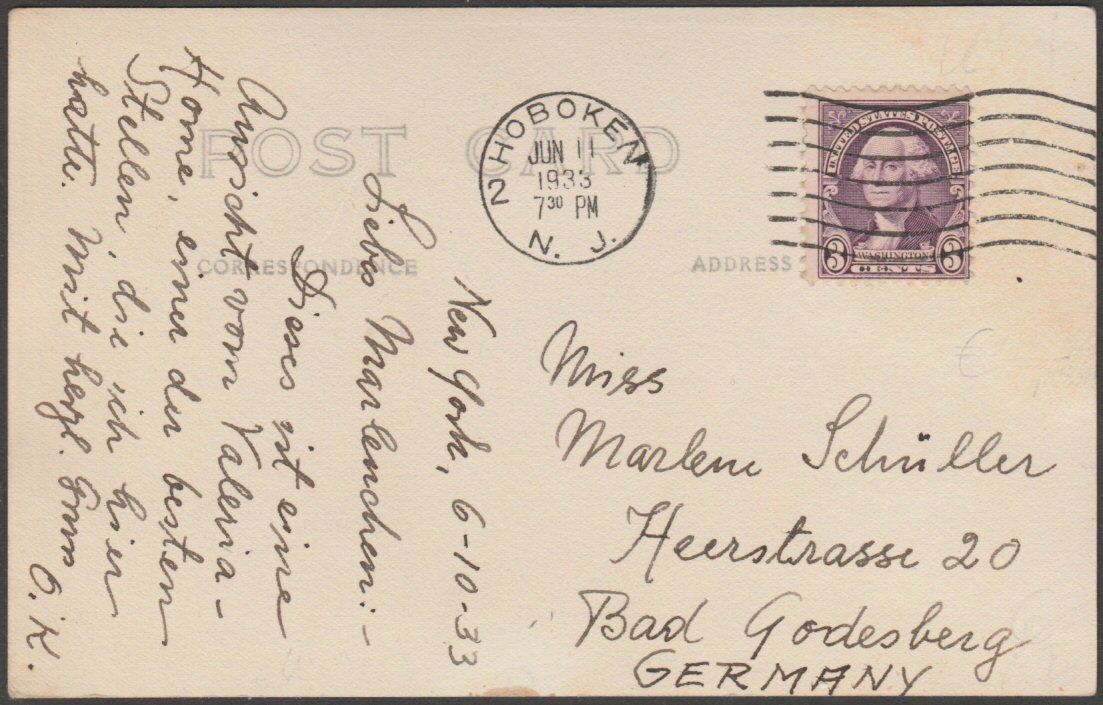 POST CARD
CORRESPONDENCE
ADDRESS
HOBOKEN
2
JUN 11
1933
7 30 PM
N. J.
UNITED STATES POSTAGE
3 WASHINGTON 3
CENTS
New York, 6-10-33
Liebes Marlenchen:-
Dieses ist eine
Ansicht vom Valeria-
Home, einer der besten
Stellen, die ich hier
hatte. Mit herzl.
O. K.
Miss
Marlene Schüller
Heerstrasse 20
Bad Godesberg
GERMANY